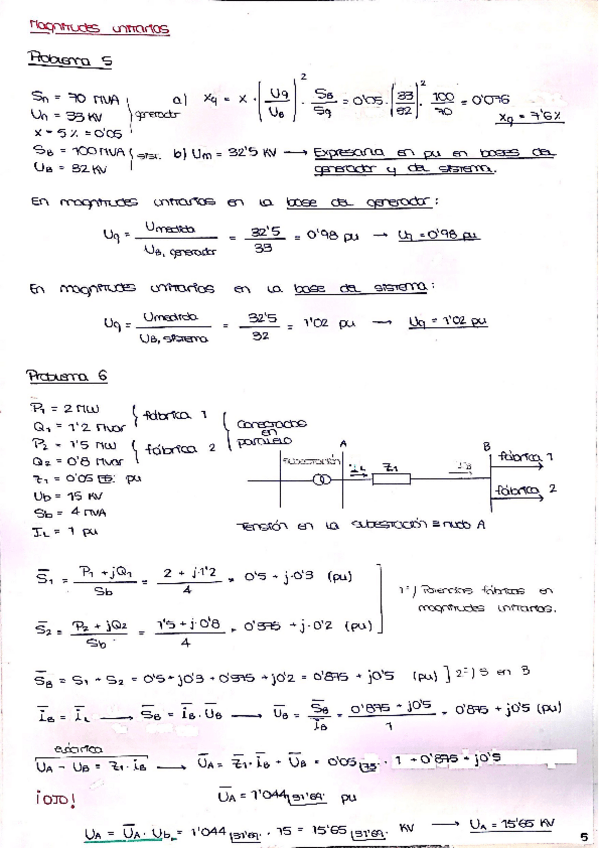 Magnitudes unitarias
Problema 5
Sn = 70 MVA
Un = 33 KV
x = 5% = 0'05
generador
a) xg = x · (Ug/UB)² · SB/Sg = 0'05 · (33/32)² · 100/70 = 0'076
xg = 7'6%
SB = 100 MVA
UB = 32 KV
sist.
b) Um = 32'5 KV → Expresarla en pu en bases del
generador y del sistema.
En magnitudes unitarias en la base del generador:
Ug = Umedida / UB, generador = 32'5 / 33 = 0'98 pu → Ug = 0'98 pu
En magnitudes unitarias en la base del sistema:
Ug = Umedida / UB, sistema = 32'5 / 32 = 1'02 pu → Ug = 1'02 pu
Problema 6
P1 = 2 MW
Q1 = 1'2 Mvar
fábrica 1
P2 = 1'5 MW
Q2 = 0'8 Mvar
fábrica 2
Conectadas
en
paralelo
z1 = 0'05 pu
Ub = 15 KV
Sb = 4 MVA
IL = 1 pu
subestación
A
IL
Z1
B
fábrica 1
fábrica 2
Tensión en la subestación ≡ nudo A
S1 = P1 + jQ1 / Sb = 2 + j·1'2 / 4 = 0'5 + j·0'3 (pu)
S2 = P2 + jQ2 / Sb = 1'5 + j·0'8 / 4 = 0'375 + j·0'2 (pu)
1º) Potencias fábricas en
magnitudes unitarias.
SB = S1 + S2 = 0'5 + j0'3 + 0'375 + j0'2 = 0'875 + j0'5 (pu) ] 2º) S en B
IB = IL → SB = IB · UB → UB = SB / IB = 0'875 + j0'5 / 1 = 0'875 + j0'5 (pu)
UA - UB = Z1 · IB → UA = Z1 · IB + UB = 0'05 |75 · 1 + 0'875 + j0'5
¡OJO!
UA = 1'044 |31'69 pu
UA = UA · Ub = 1'044 |31'69 · 15 = 15'65 |31'69 KV → UA = 15'65 KV
5